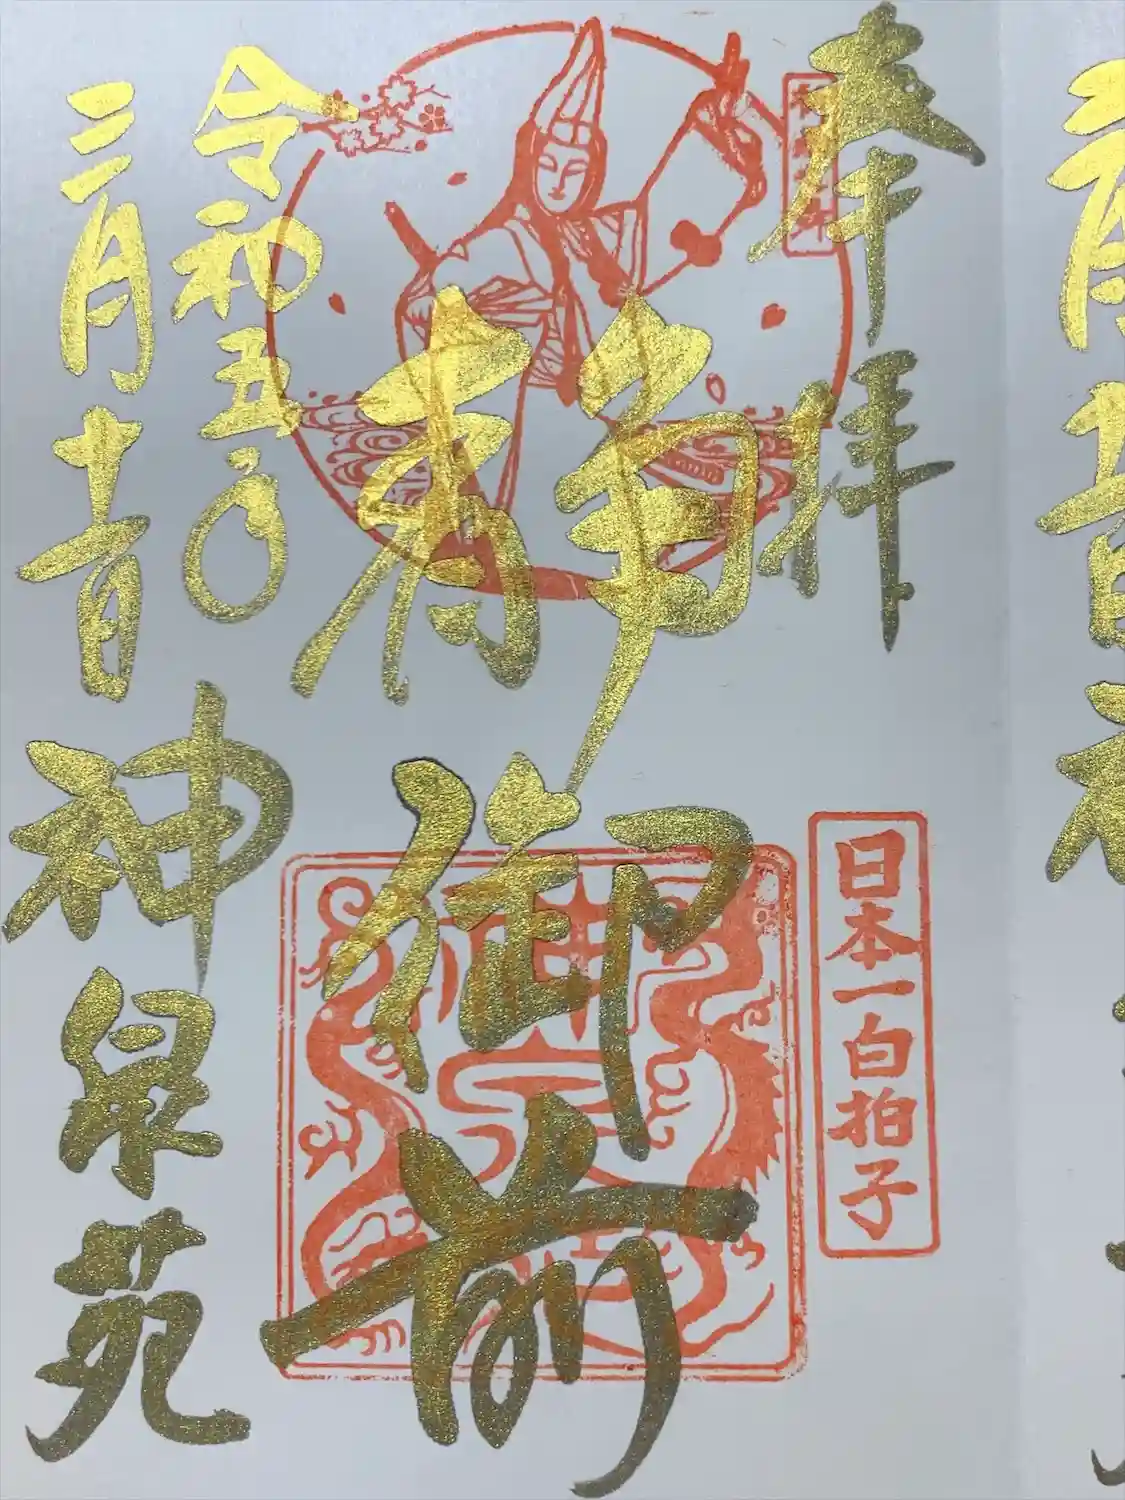 奉拝
日本一白拍子
静御前
令和五年
三月十一日
神泉苑